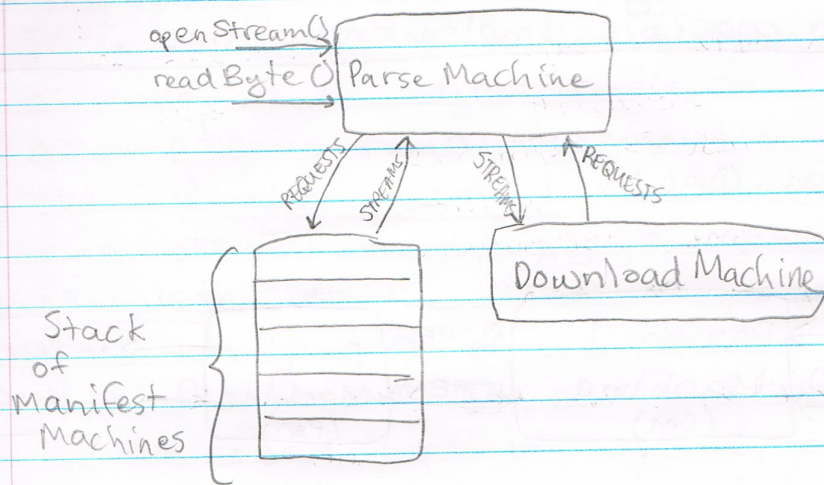 openStream()
readByte() Parse Machine
REQUESTS
STREAMS
STREAMS
REQUESTS
Download Machine
Stack
of
Manifest
Machines